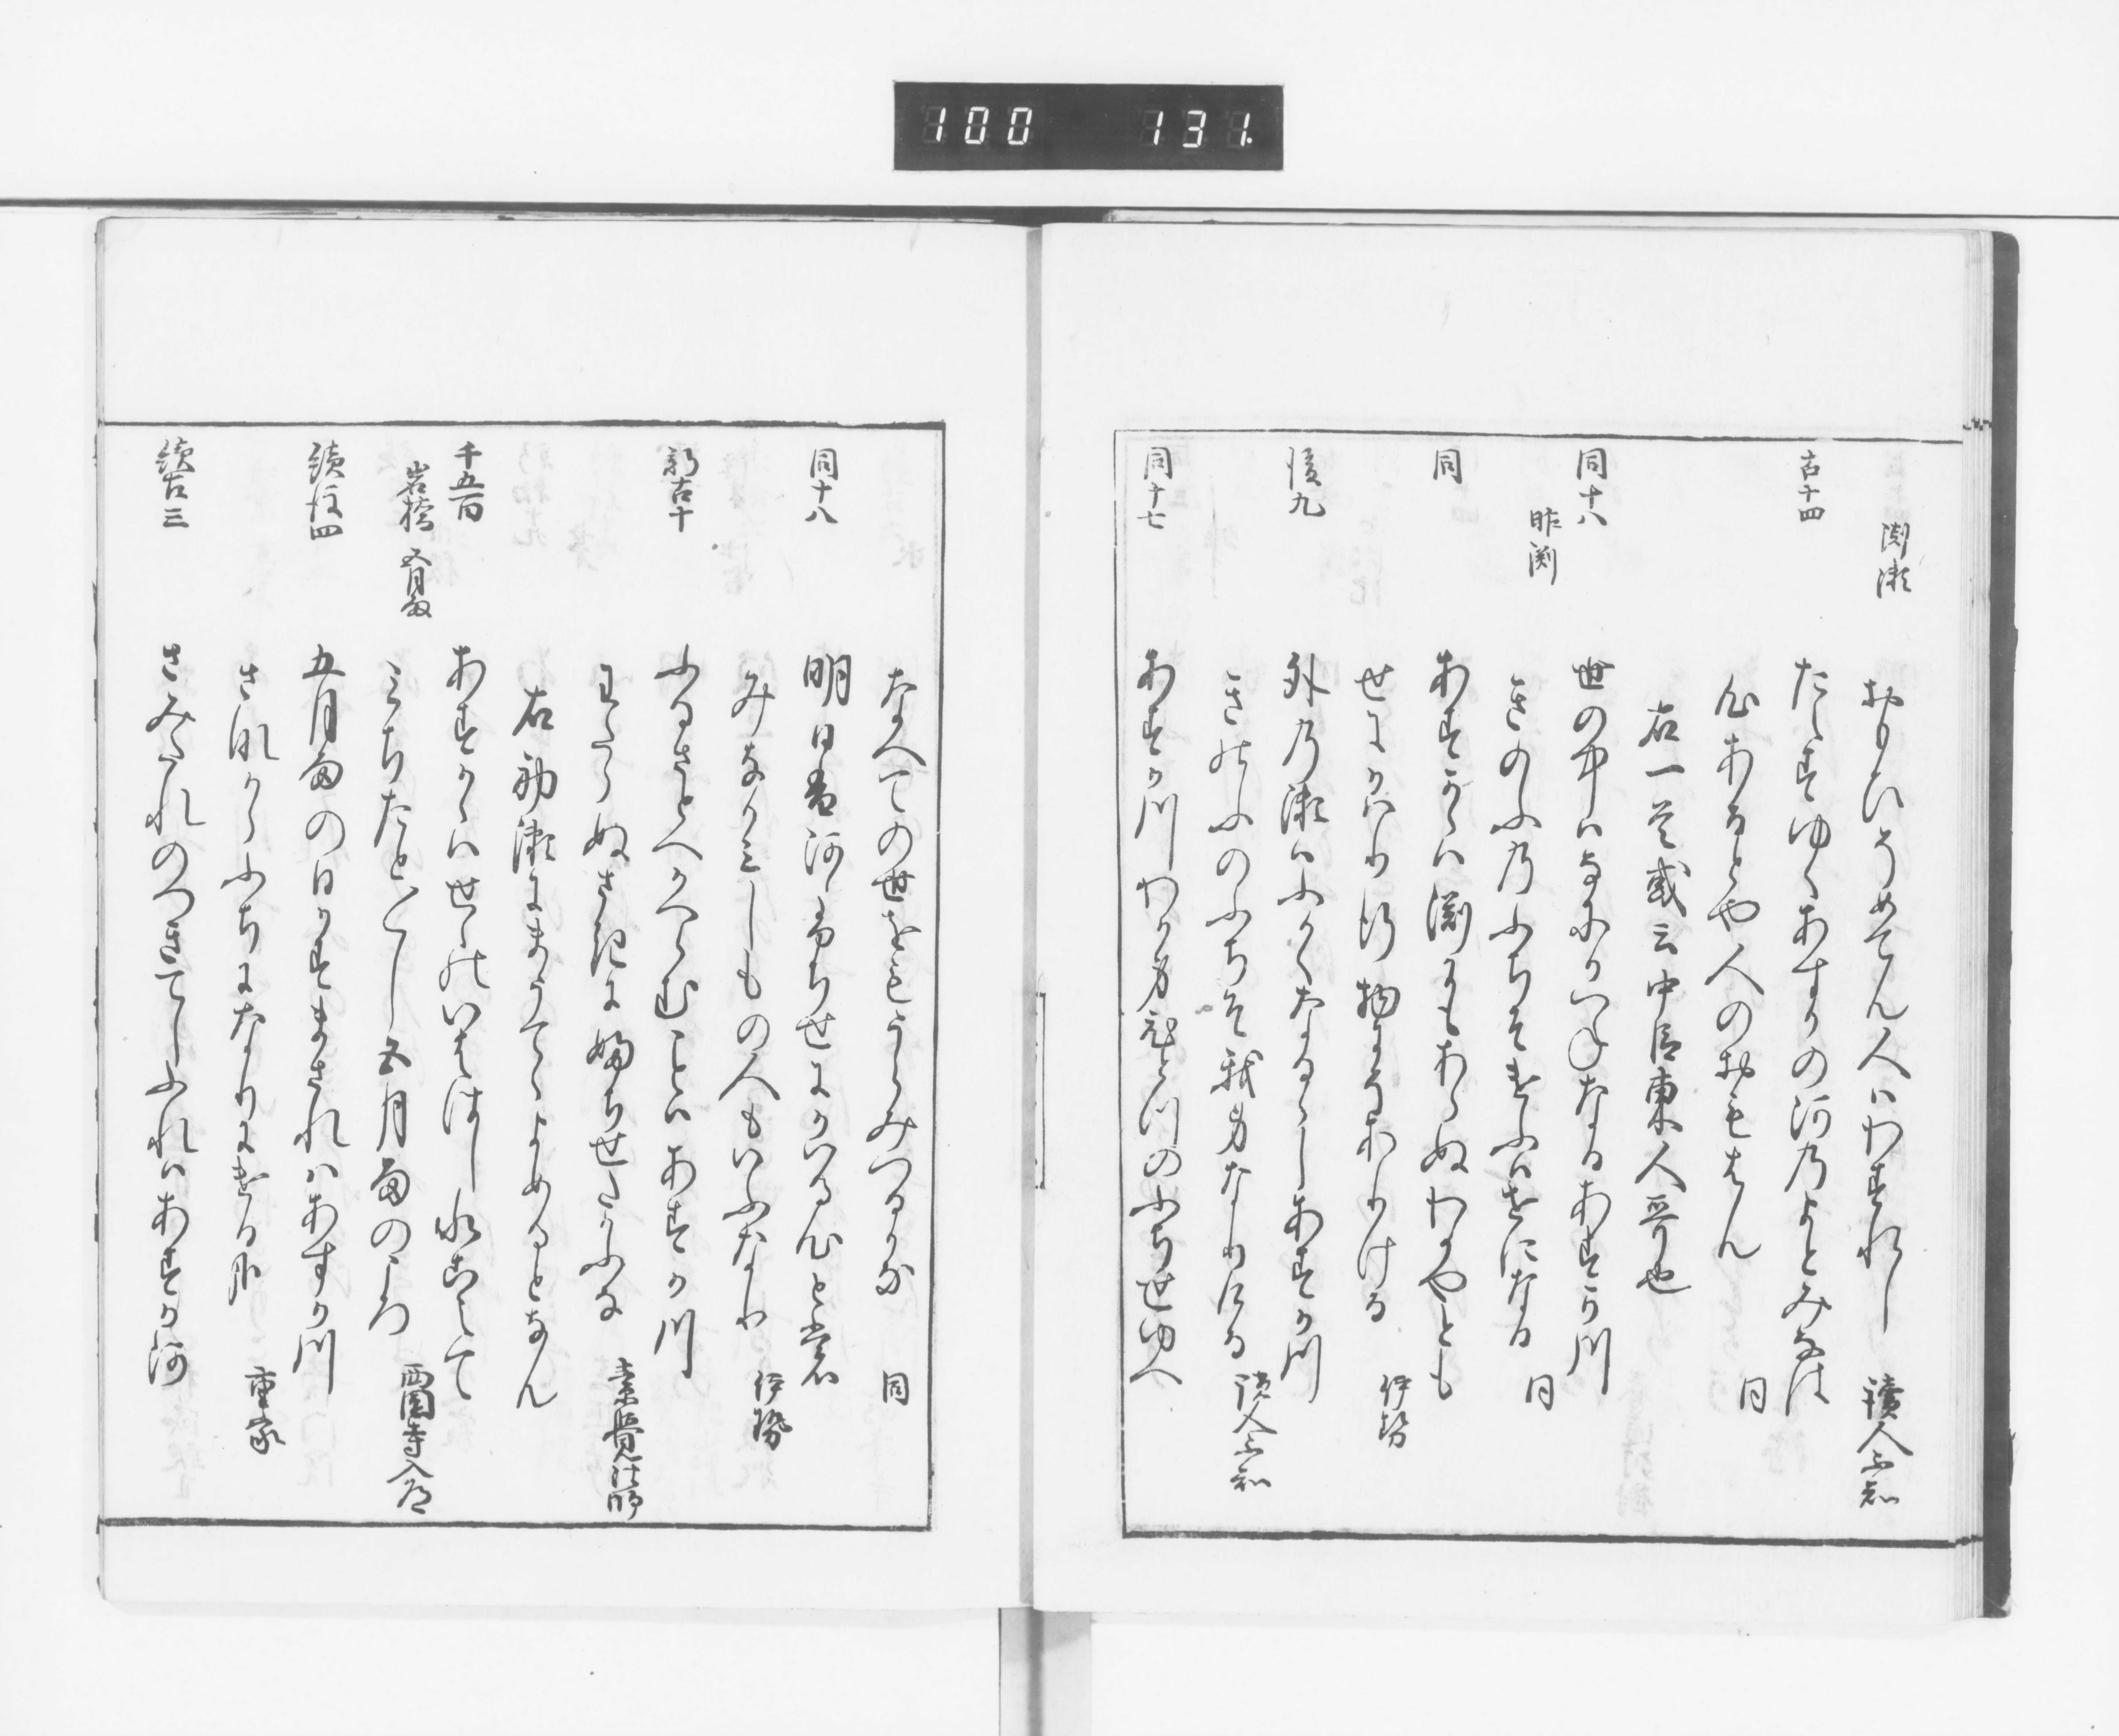 100 131
渕瀬 おもひそめてん人はわすれし 讀人不知
古十四 たえすゆくあすかの河乃よとみなは
心あるとや人のおもはん 同
右一首或云中臣東人哥也
同十八 世の中はなにかつねなるあすか川
昨渕 きのふ乃ふちそけふはせになる 同
同 あすか川渕にもあらぬわかやとも
せにかはり行物にそありける 伊勢
後九 外乃瀬はふかくなるらしあすか川
きのふのふちそ我身なりける 讀人不知
同十七 あすか川わか身ひとつのふち世ゆへ
なへての世をもうらみつるかな 同
同十八 明日香河ふちせにかはる心とは
みなかみしもの人もいふなり 伊勢
新古十 ふるさとへかへらむことはあすか川
わたらぬさきに淵せたかふな 素覺法師
右初瀬にまうてゝよめるとなん
千五百 あすか川せゝのいははし水こえて
岩橋 五月雨 みちたと〳〵し五月雨のころ 西園寺入道
續後四 五月雨の日かすまされはあすか川
さなからふちになりにける哉 重家
續古三 さみたれのつきてしふれはあすか河